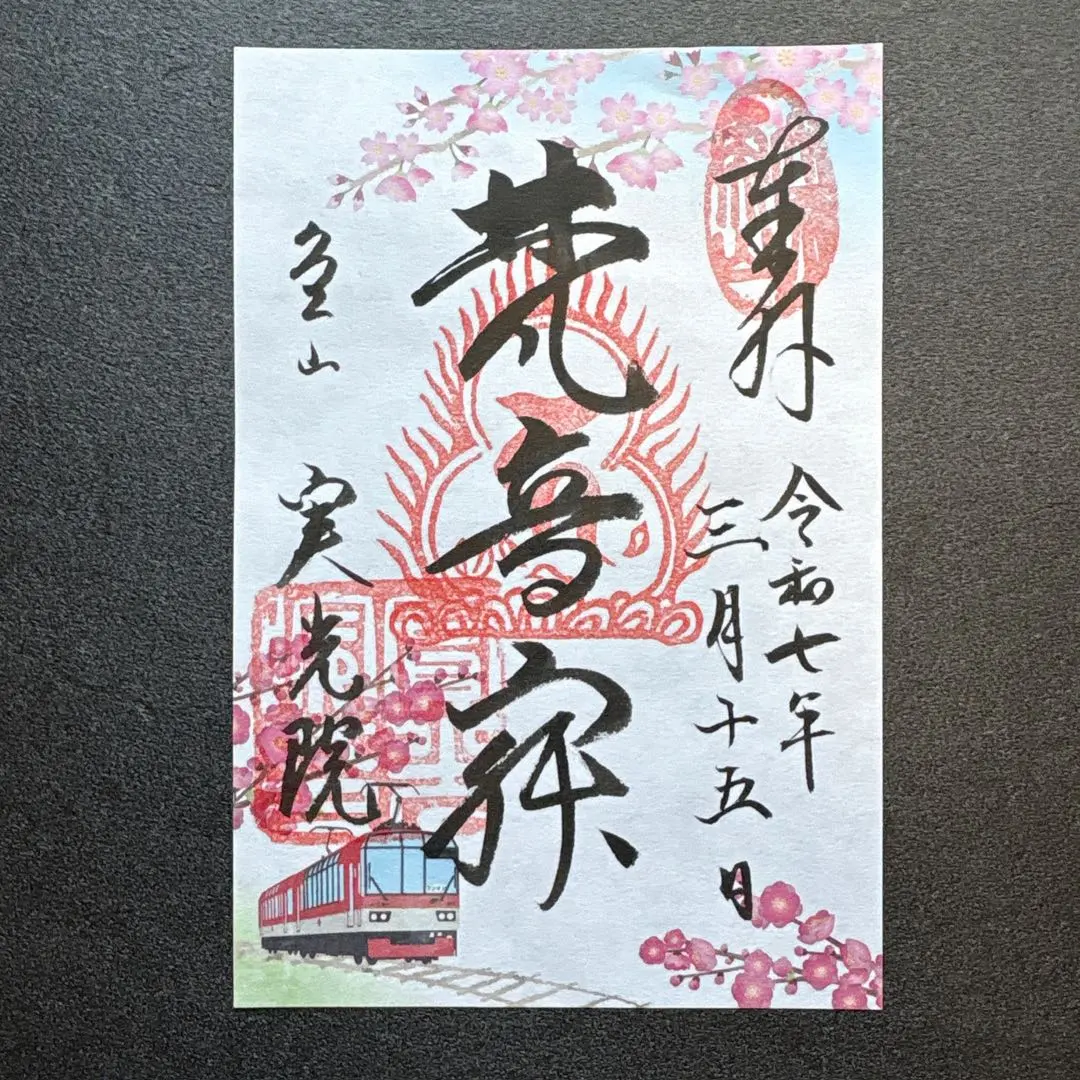 奉拝
令和七年
三月十五日
梵音
魚山
実光院